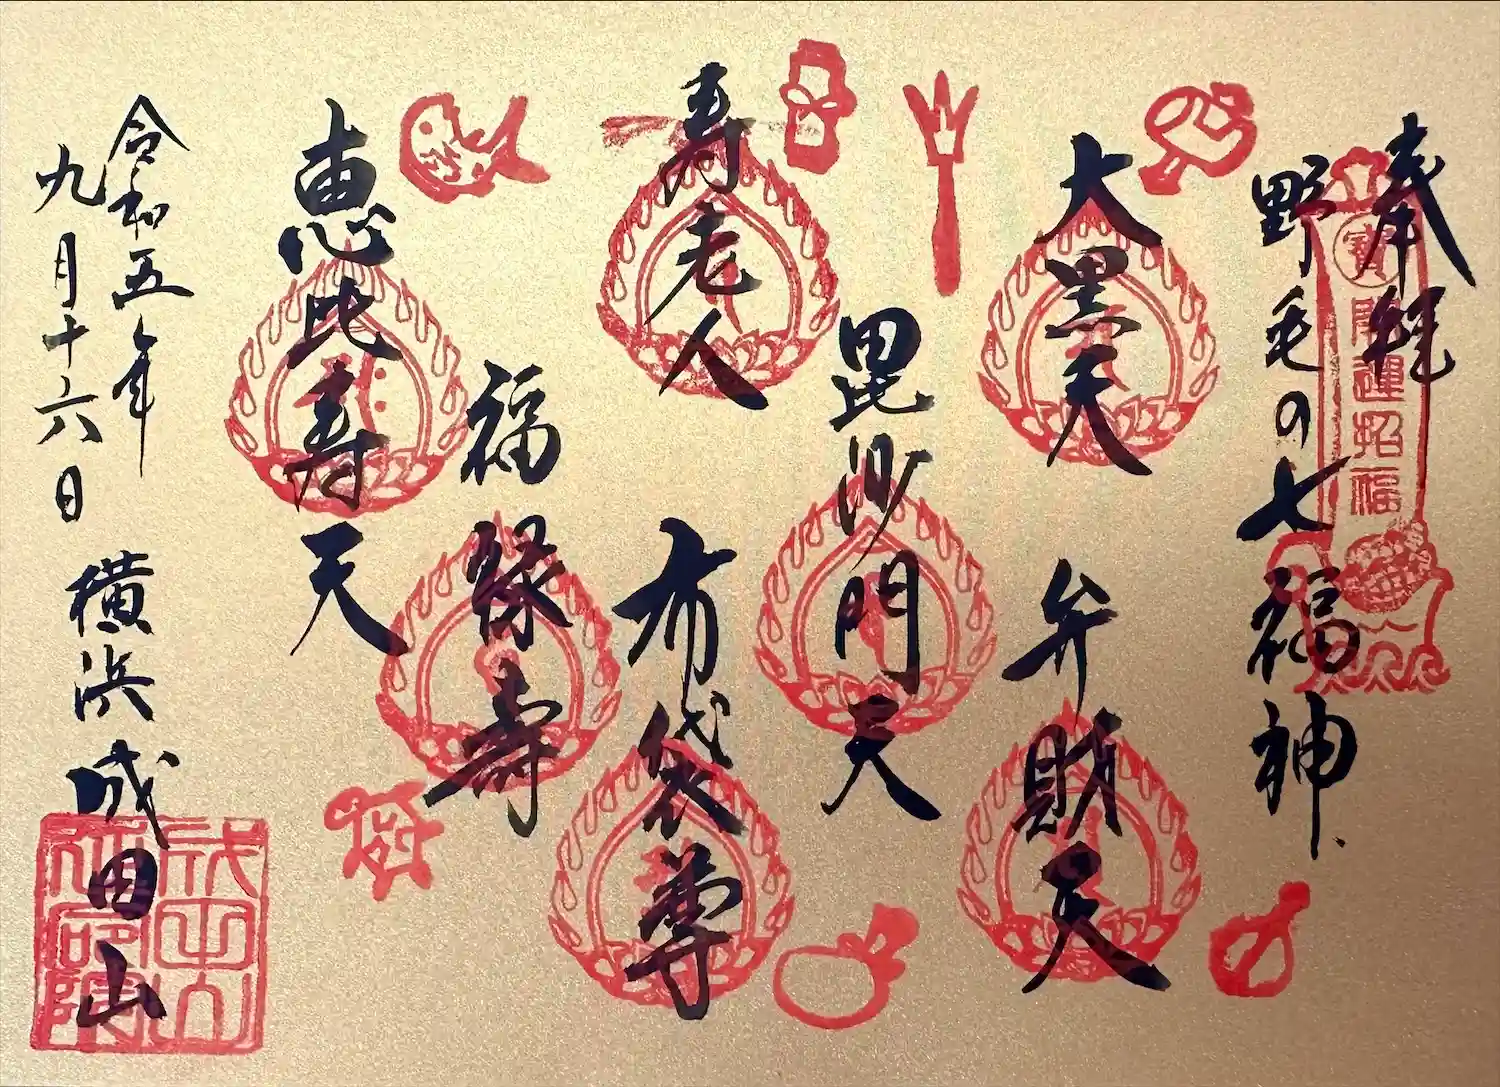 奉拝
寳
開運招福
野毛の七福神
大黒天
弁財天
毘沙門天
寿老人
布袋尊
福禄寿
恵比寿天
令和五年
九月十六日
横浜成田山
成田山
延命院